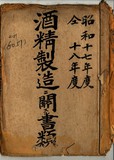 昭和十七年度
仝 十八年度
酒精製造ニ關スル書類